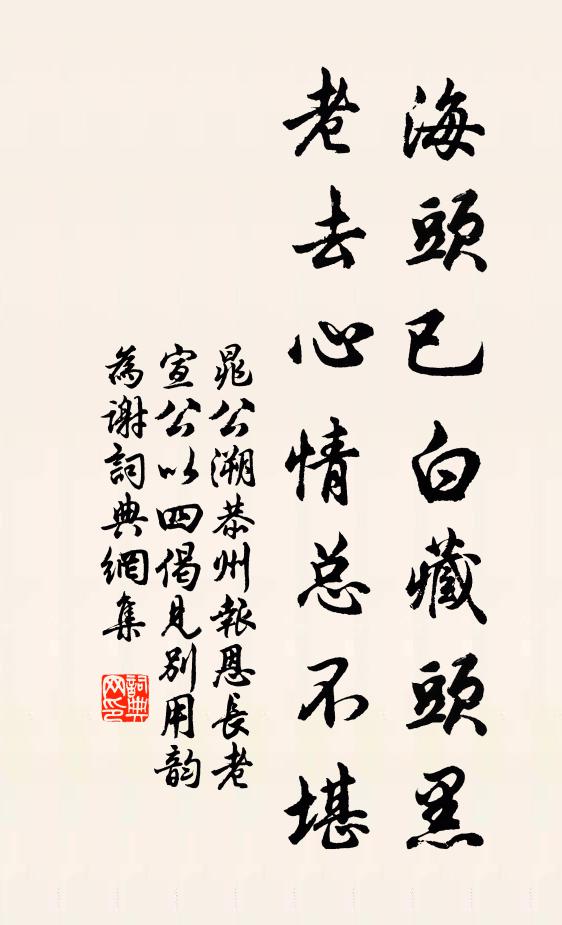 海頭已白藏頭黑
老去心情总不堪
晁公溯恭州報恩長老
宣公以四偈見別用韵
為谢詞典網集
詞典
网印